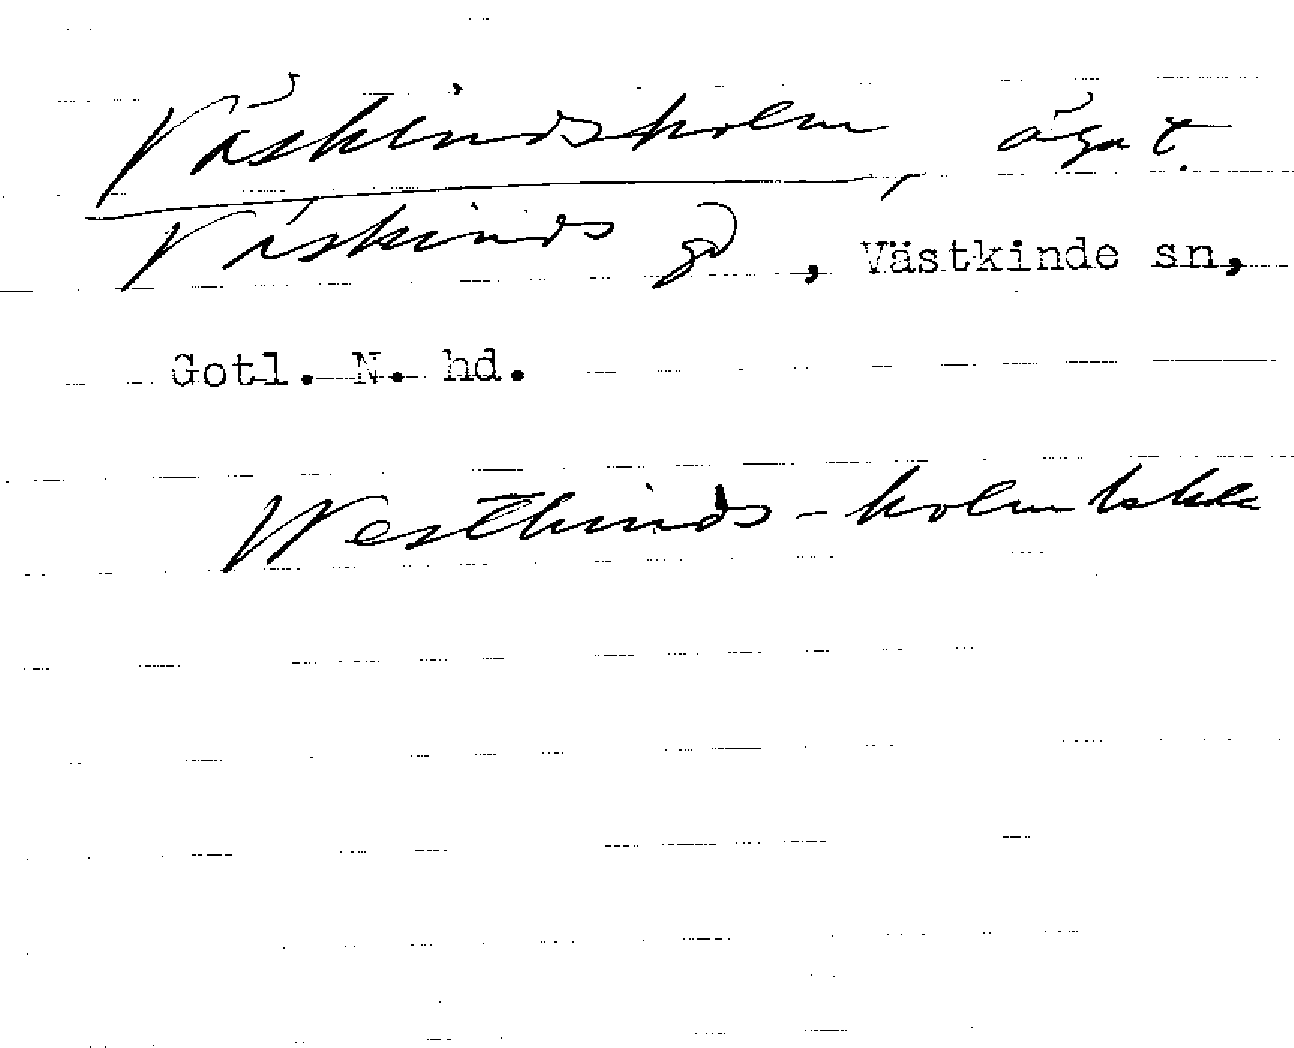 Väskindsholm, ägat.
Väskinds gd, Västkinde sn,
Gotl. N. hd.
Westkinds-holm